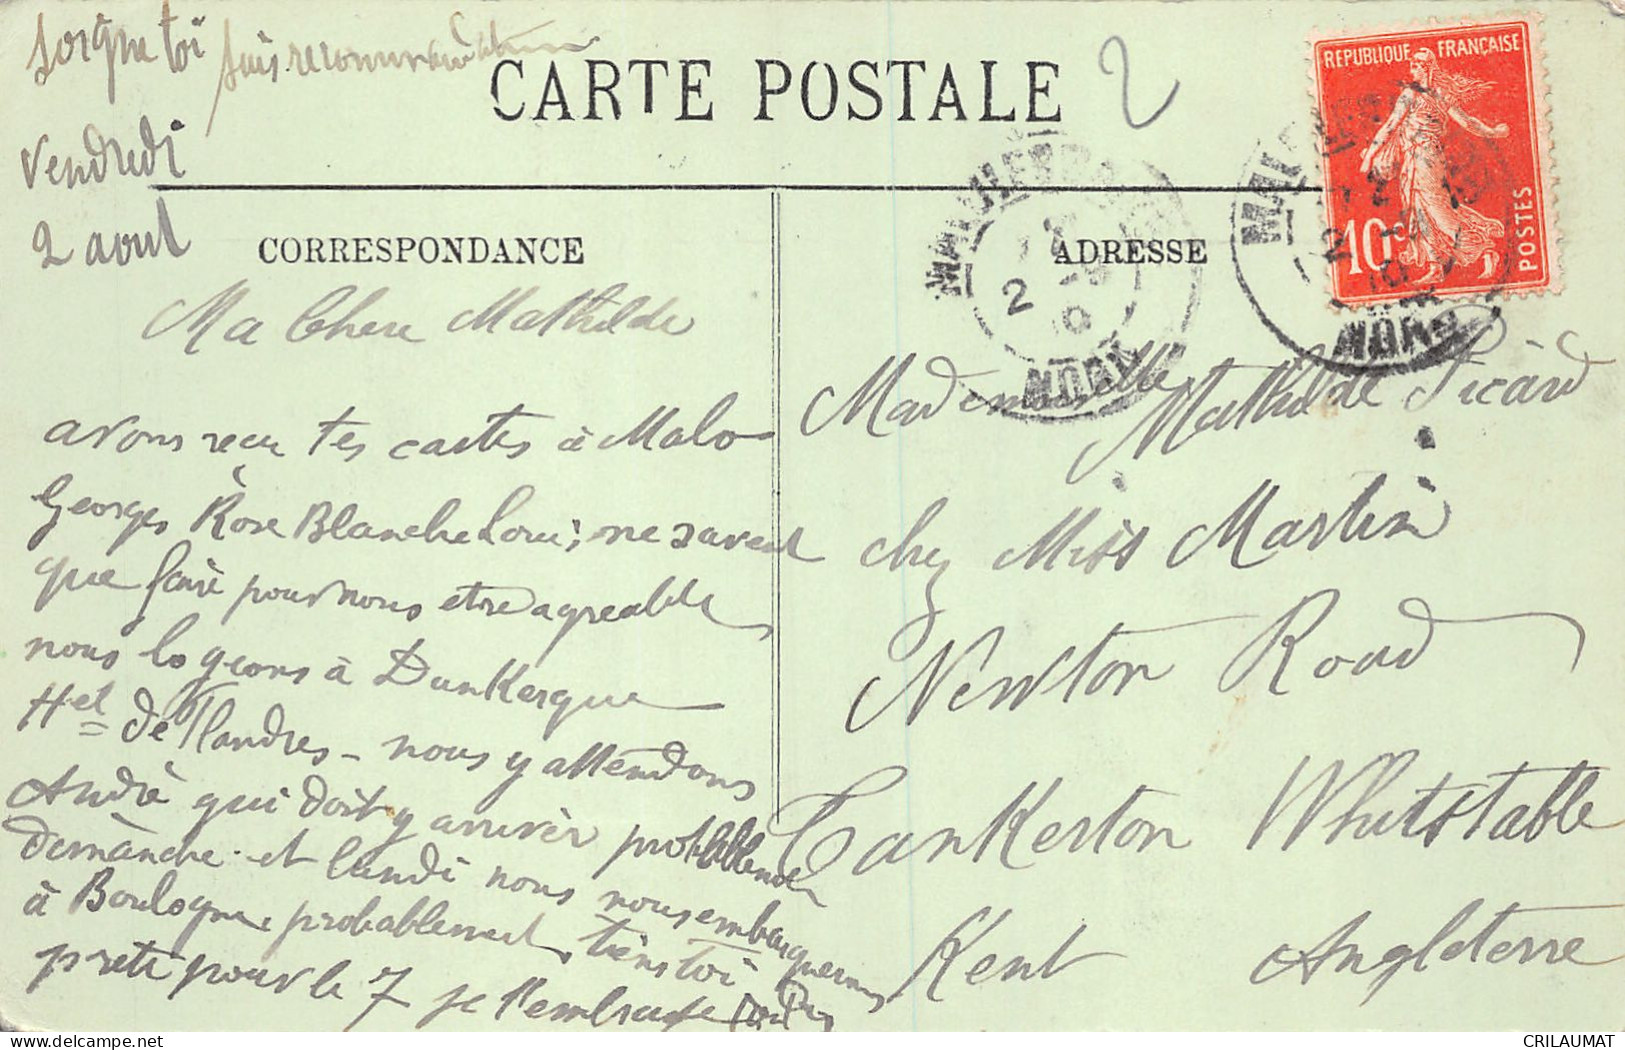 soigne toi
suis recommandation
Vendredi
2 aout
CARTE POSTALE
2
REPUBLIQUE FRANÇAISE
10c
POSTES
CORRESPONDANCE
ADRESSE
2
NORD
NORD
Ma Chere Mathilde
avons recu tes cartes à Malo
Georges Rose Blanche Louis ne savent
que faire pour nous etre agreable
nous logeons à Dunkerque
Hel de Flandres - nous y attendons
Andrè qui doit y arriver probablement
dimanche et lundi nous nous embarquerons
à Boulogne probablement tiens toi
prete pour le 7 je t'embrasse
Mademoiselle
Mathilde Picard
chez Miss Martin
Newton Road
Tankerton Whitstable
Kent Angleterre
CRILAUMAT